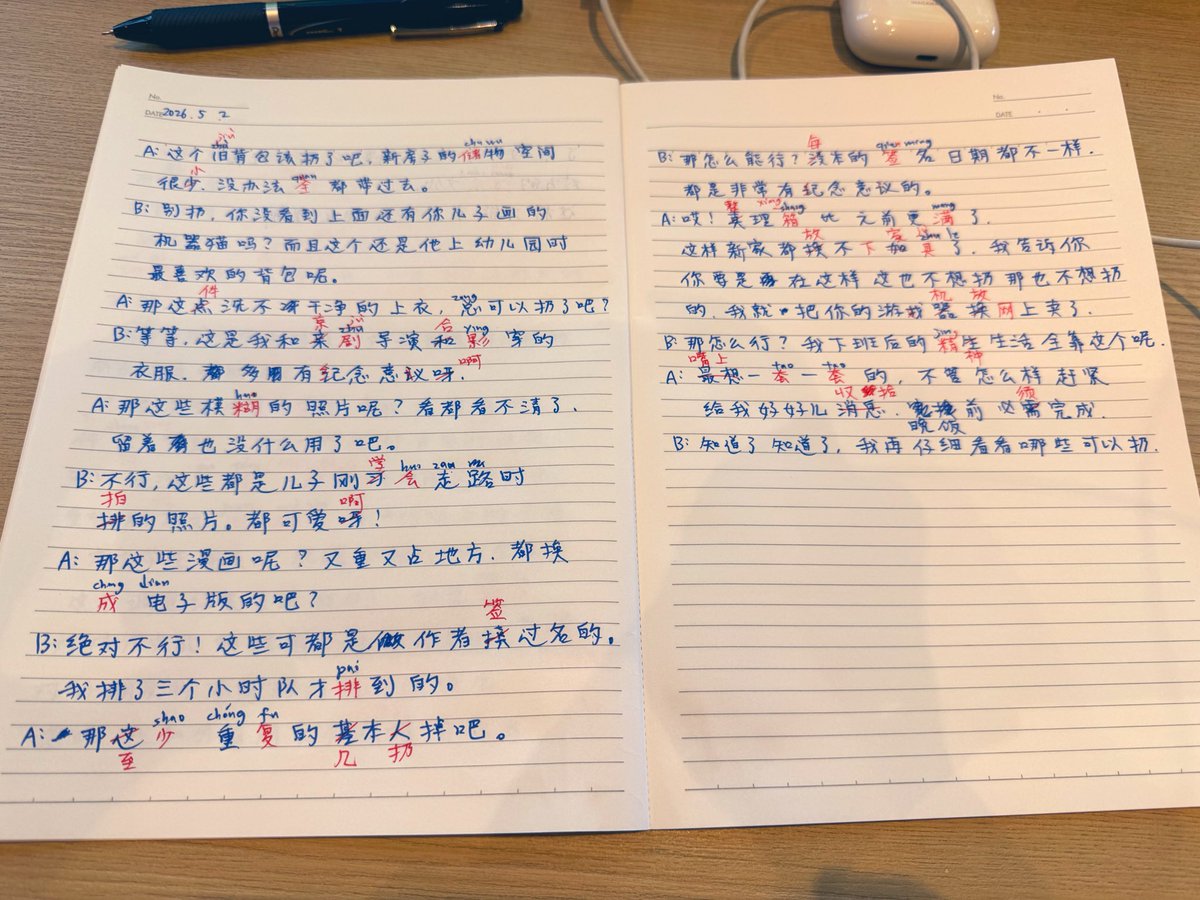 No.
DATE 2026.5.2
jiù
A: 这个旧背包该扔了吧，新房子的储物空间
chu wu
小
很少，没办法全都带过去。
quan
B: 别扔，你没看到上面还有你儿子画的
机器猫吗？而且这个还是他上幼儿园时
最喜欢的背包呢。
件
A: 那这点洗不干净的上衣，总可以扔了吧？
zong
B: 等等，这是我和某剧导演和影穿的
京 jù 合 ying
衣服。都多有纪念意议呀。
啊
A: 那这些模糊的照片呢？看都看不清了，
hao
留着也没什么用了吧。
学
B: 不行，这些都是儿子刚才会走路时
hui zou
拍
排的照片。都可爱呀！
啊
A: 那这些漫画呢？又重又占地方，都换
cheng dian
成 电子版的吧？
签
B: 绝对不行！这些可都是做作者换过名的。
pai
我排了三个小时队才排到的。
shao chóng fu
A: 那这少 重复的基本人掉吧。
至 几 扔
No.
DATE
每
B: 那怎么能行？没本的签名日期都不一样。
qian ming
都是非常有纪念意议的。
整
A: 哎！真理箱比之前更满了。
xiang man
放 家
这样新家都换不下加具了。我告诉你
你要是在这样这也不想扔那也不想扔
机 放
的，我就把你的游戏器换网上卖了。
jing
B: 那怎么行？我下班后的精生生活全靠这个呢。
神
嘴上
A: 最想一套一套的，不管怎么样赶紧
tao tao
收拾 须
给我好好儿消息，前必需完成。
晚饭
B: 知道了知道了，我再仔细看看哪些可以扔。